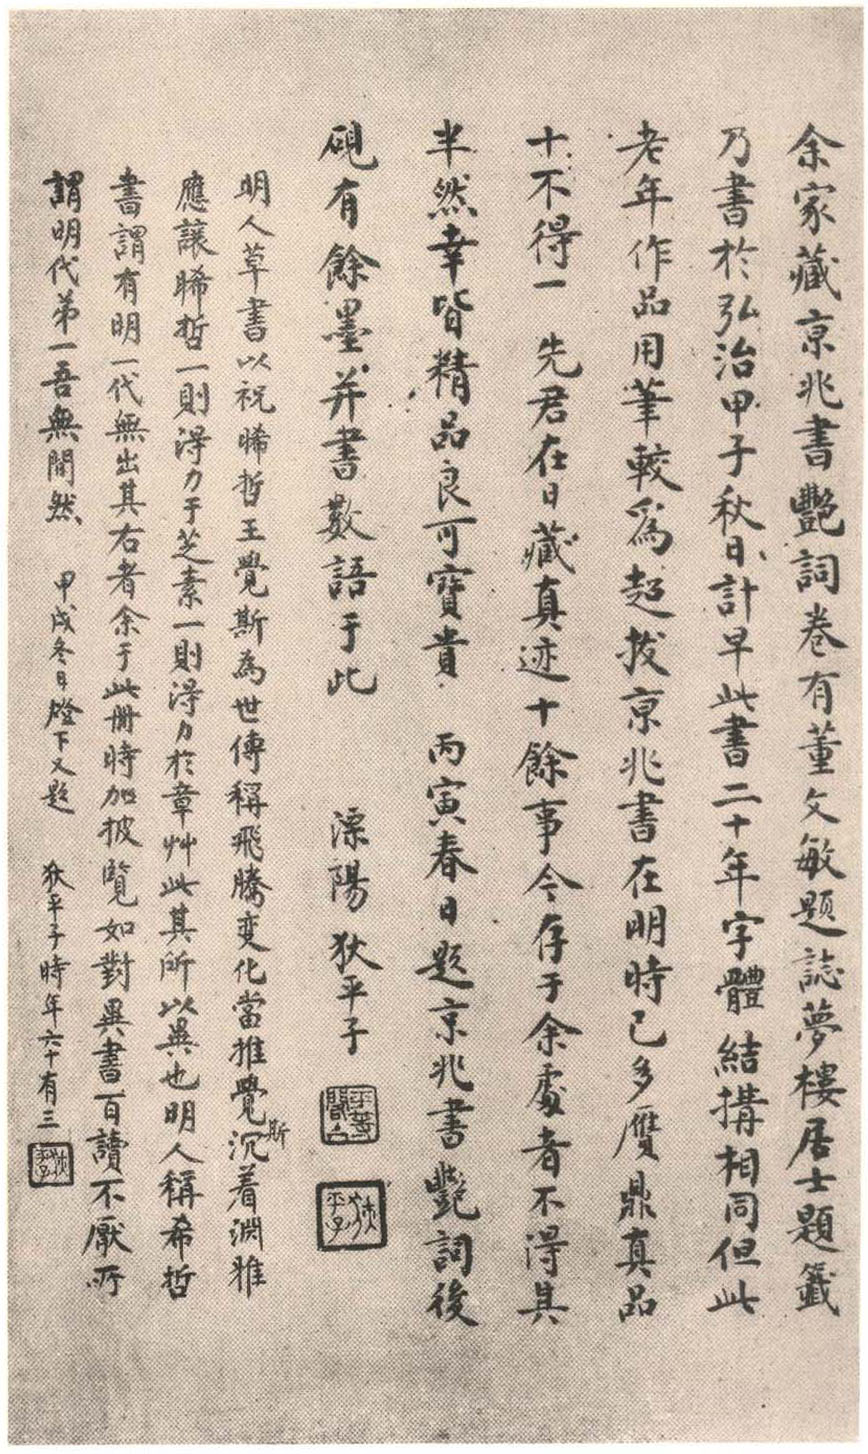 余家藏京兆書艷詞卷有董文敏題誌夢樓居士題籤
乃書於弘治甲子秋日計早此書二十年字體結搆相同但此
老年作品用筆較爲超拔京兆書在明時已多贋鼎真品
十不得一 先君在日藏真迹十餘事今存于余處者不得其
半然幸皆精品良可寶貴 丙寅春日題京兆書艷詞後
硯有餘墨并書數語于此 溧陽狄平子
明人草書以祝睎哲王覺斯為世傳稱飛騰变化當推覺斯沉着淵雅
應讓睎哲一則淂力于芝素一則淂力於章艸此其所以異也明人稱希哲
書謂有明一代無出其右者余于此册時加披覽如對異書百讀不厭所
謂明代弟一吾無間然 甲戌冬日燈下又題 狄平子時年六十有三
狄平子
狄平子